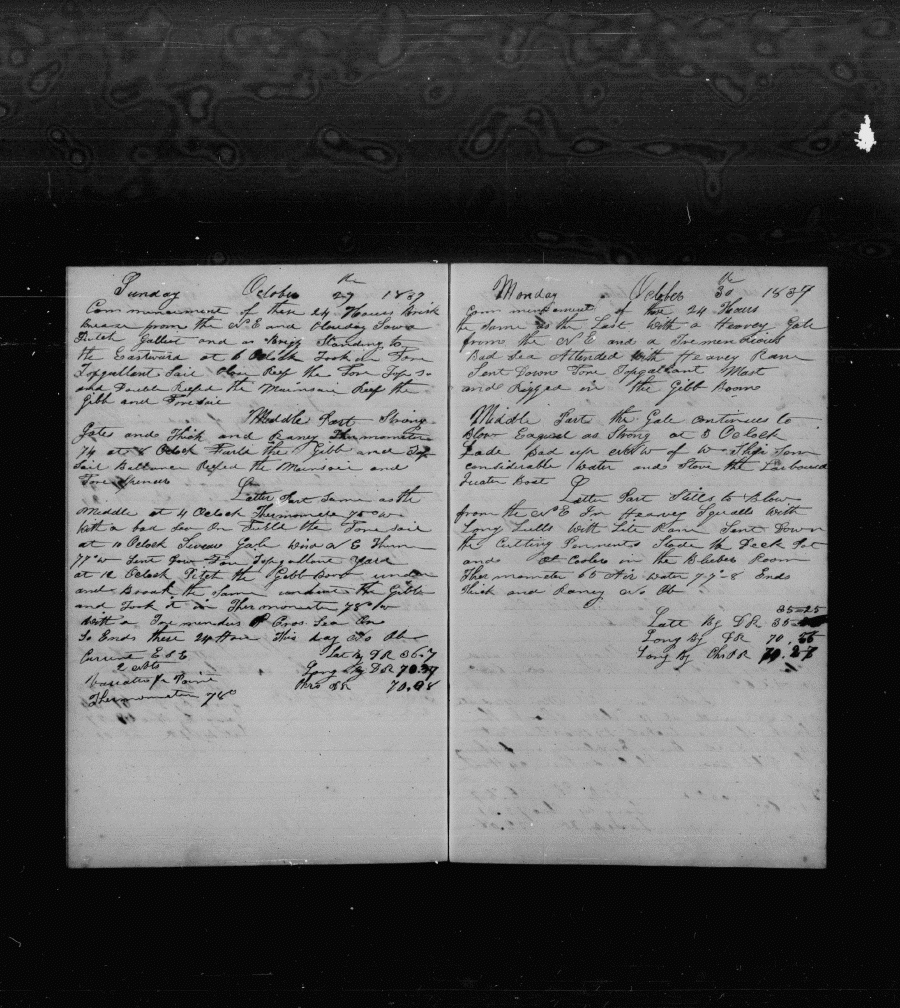 Sunday October 29 th 1837
Commencement of these 24 Hours Brisk
breese from the N E and Cloudy Saw a
Dutch Galliot and a Brigg Standing to
the Eastward at 6 Oclock Took in Fore
Topgallant Sail Close Reef the Fore Top Sa
and Double Reefed the Mainsail Reef the
Gibb and Foresail
Middle Part Strong
Gales and Thick and Raney Thermometer
74 at 8 Oclock Furld the Gibb and Top
Sail Ballance Reefed the Mainsail and
Fore Spencer
Latter Part Same as the
Middle at 4 Oclock Thermometer 75° w
With a bad Sea On Furld the Fore sail
at 10 Oclock Severe Gale Wind N E Therm
77° w Sent Down Fore Topgallant Yard
at 12 Oclock Pitch the Gibb Boom under
and Broak the Same the Gibb
and Took it in Thermometer 78° w
With a Tremendus Cros Sea On
So Ends these 24 Hours This day No Ob
Current E S E Lat by D R 36.7
2 Long by D R 70.27
Variation Point Chro D R 70.08
Thermometer 78°
Monday October 30 th 1837
Commencement of these 24 Hours
the Same as the Last With a Heavey Gale
from the N E and a Tremendeous
Bad Sea Attended With Heavey Rane
Sent Down Fore Topgallant Mast
and Rigged in the Gibb Boom
Middle Part the Gale continues to
Blow Eaqual as Strong at 3 Oclock
Lade Ship Some
considerable Water and Stove the Larboard
Quater Boat
Latter Part Stills to Blow
from the N E In Heavey Squalls With
Long Lulls With Lit Rane Sent Down
the Cutting Penments Stade the Deck Pot
and Coolers in the Blubber Room
Thermometer 65 Air Water 77-8 Ends
Thick and Raney No Ob
35-25
Latt By D R 35
Long By D R 70.
Long By Chr D R 70.27